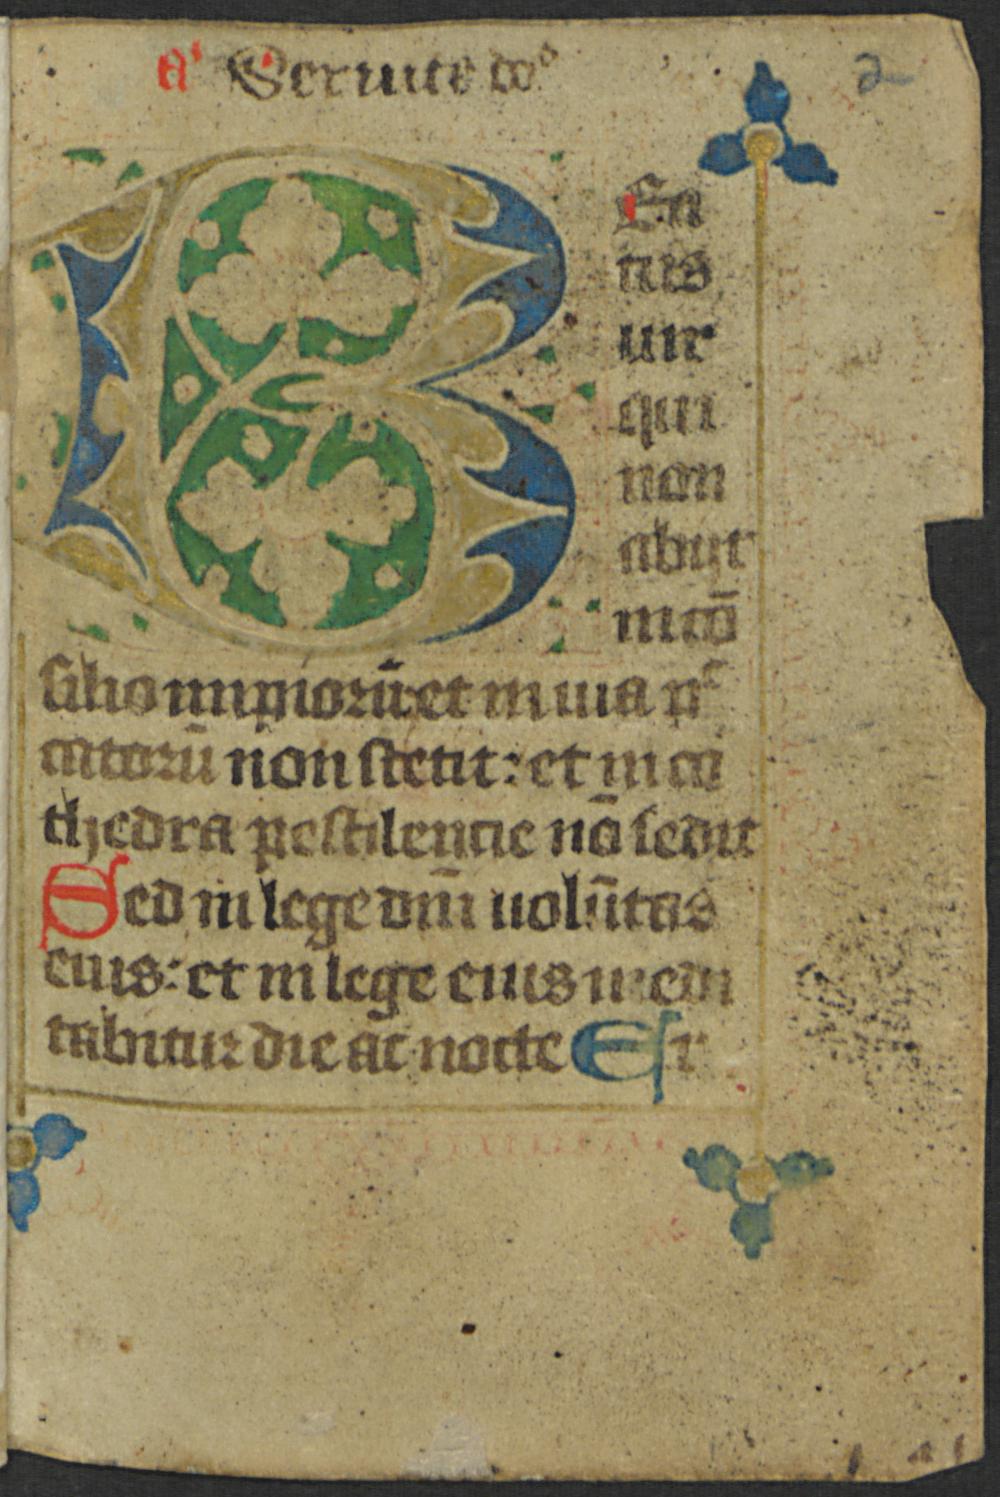 a' Seruite do
2
B Ea
tus
uir
qui
non
abijt
in cō
silio impiorū et in uia pc
catorū non stetit: et in ca
thedra pestilencie nō sedit
Sed in lege dnī uolūtas
eius: et in lege eius medi
tabitur die ac nocte Et